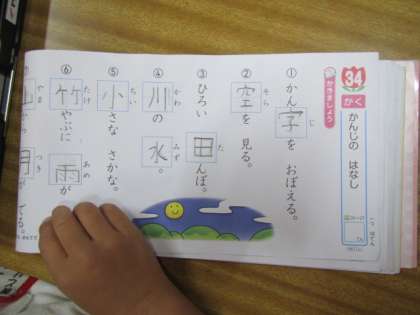 34
かく
かんじの はなし
かきましょう
① かん字を おぼえる。
じ
② 空を 見る。
そら
③ ひろい 田んぼ。
た
④ 川の 水。
かわ
みず
⑤ 小さな さかな。
ちい
⑥ 竹やぶに 雨が
たけ
あめ
つき
でる。